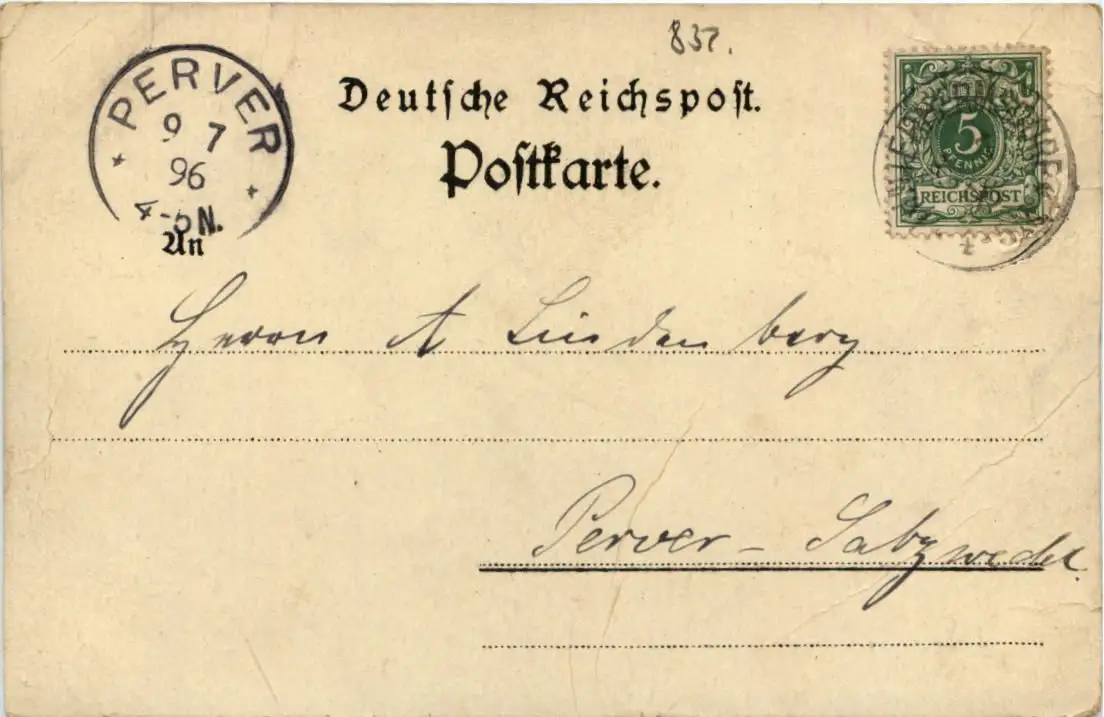 832.
PERVER
9 7
96
4-5N.
Deutsche Reichspost.
Postkarte.
5
PFENNIG
REICHSPOST
An
Herrn A Lindenberg
Perver - Salzwedel